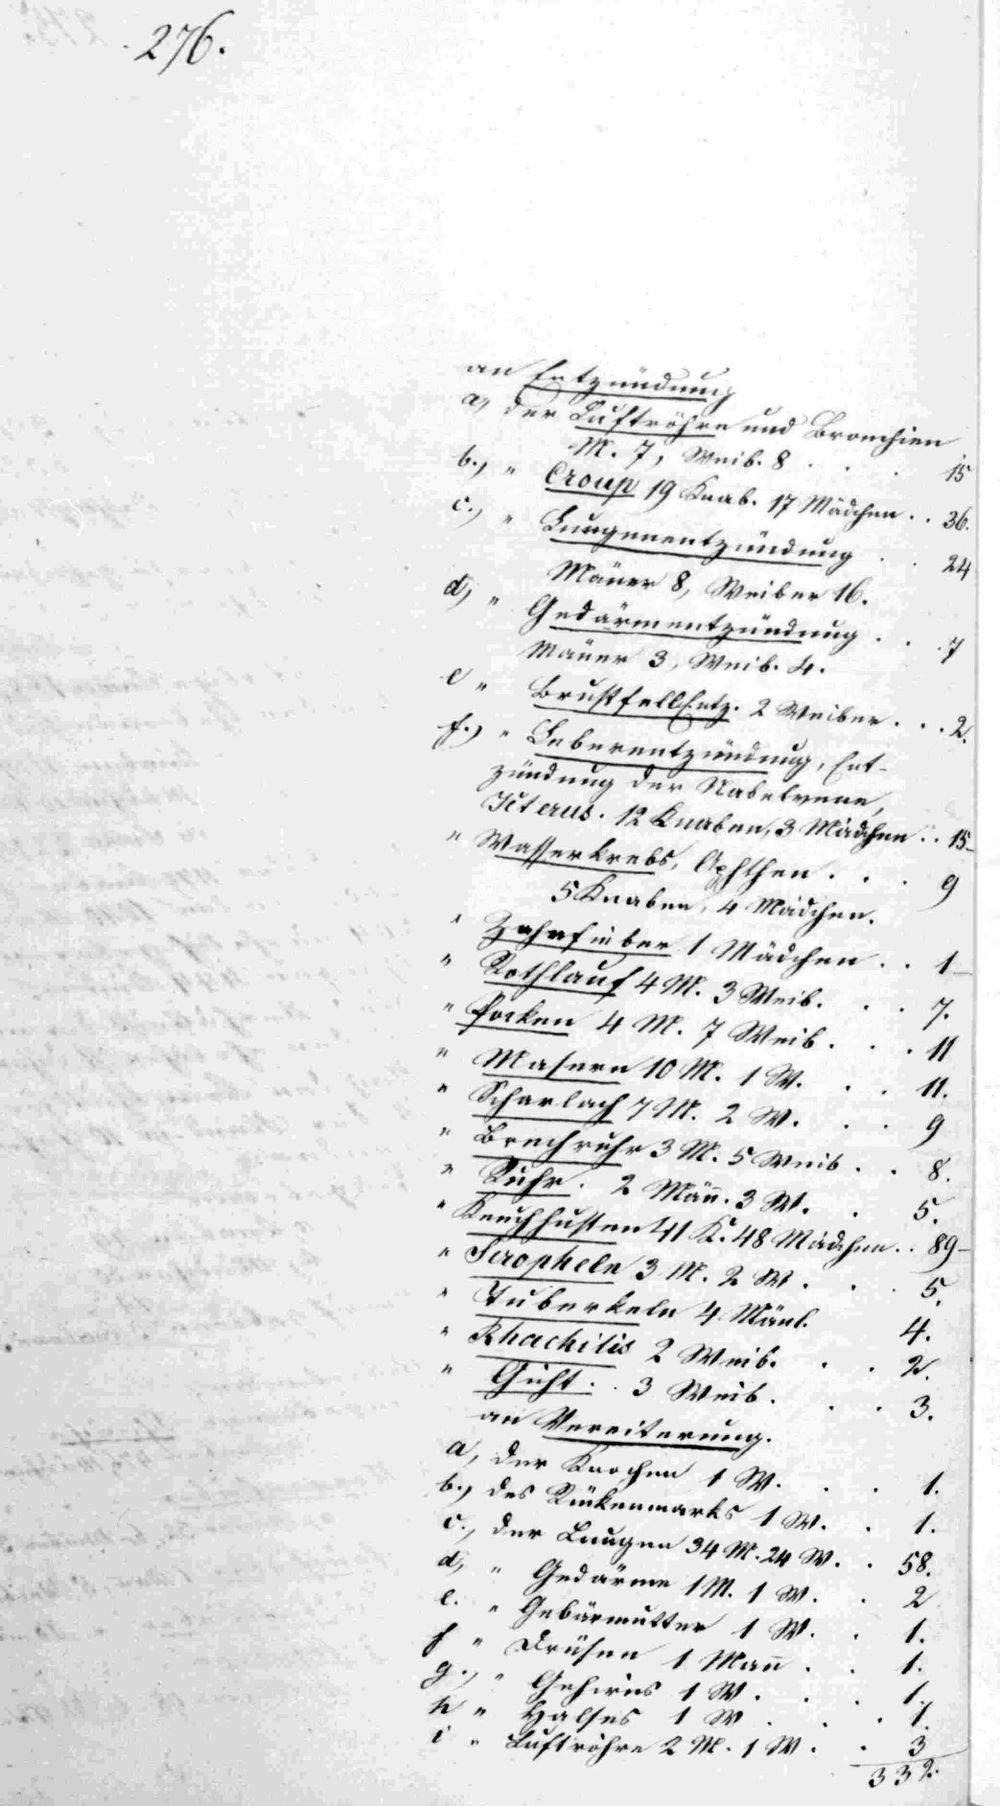 276.
an Entzündung
a, der Luftröhre und Bronchien
M. 7, Weib. 8 . . . 15
b., " Croup 19 Knab. 17 Mädchen . . 36.
c., " Lungenentzündung . . 24
Mäner 8, Weiber 16.
d, " Gedärmentzündung . . . 7
Mäner 3, Weib. 4.
e " Brustfell Entz. 2 Weiber . . . 2.
f., " Leberentzündung, Ent-
zündung der Nabelvene,
Icterus. 12 Knaben, 3 Mädchen . . 15
" Wasserkrebs, Aphthen . . . 9
5 Knaben, 4 Mädchen.
" Zahnfieber 1 Mädchen . . 1
" Rothlauf 4 M. 3 Weib. . . 7.
" Pocken 4 M. 7 Weib . . . 11
" Masern 10 M. 1 W. . . 11.
" Scharlach 7 M. 2 W. . . 9
" Brechruhr 3 M. 5 Weib . . 8.
" Ruhr . 2 Mäñ. 3 W. . 5.
" Keuchhusten 41 K. 48 Mädchen . . 89
" Scropheln 3 M. 2 W . . . 5.
" Tuberkeln 4 Mänl. 4.
" Rhachitis 2 Weib. . . 2.
" Gicht . . 3 Weib. . . 3.
an Vereiterung.
a, der Knochen 1 W. . . 1.
b., des Rükenmarks 1 W. . 1.
c., der Lungen 34 M. 24 W. . 58.
d, " Gedärme 1 M. 1 W. . 2
e. " Gebärmutter 1 W. . 1.
f " Drüsen 1 Mañ . . 1.
g., " Gehirns 1 W . . . 1.
h " Halses 1 W . . . 1.
i " Luftröhre 2 M. 1 W . . 3
332.